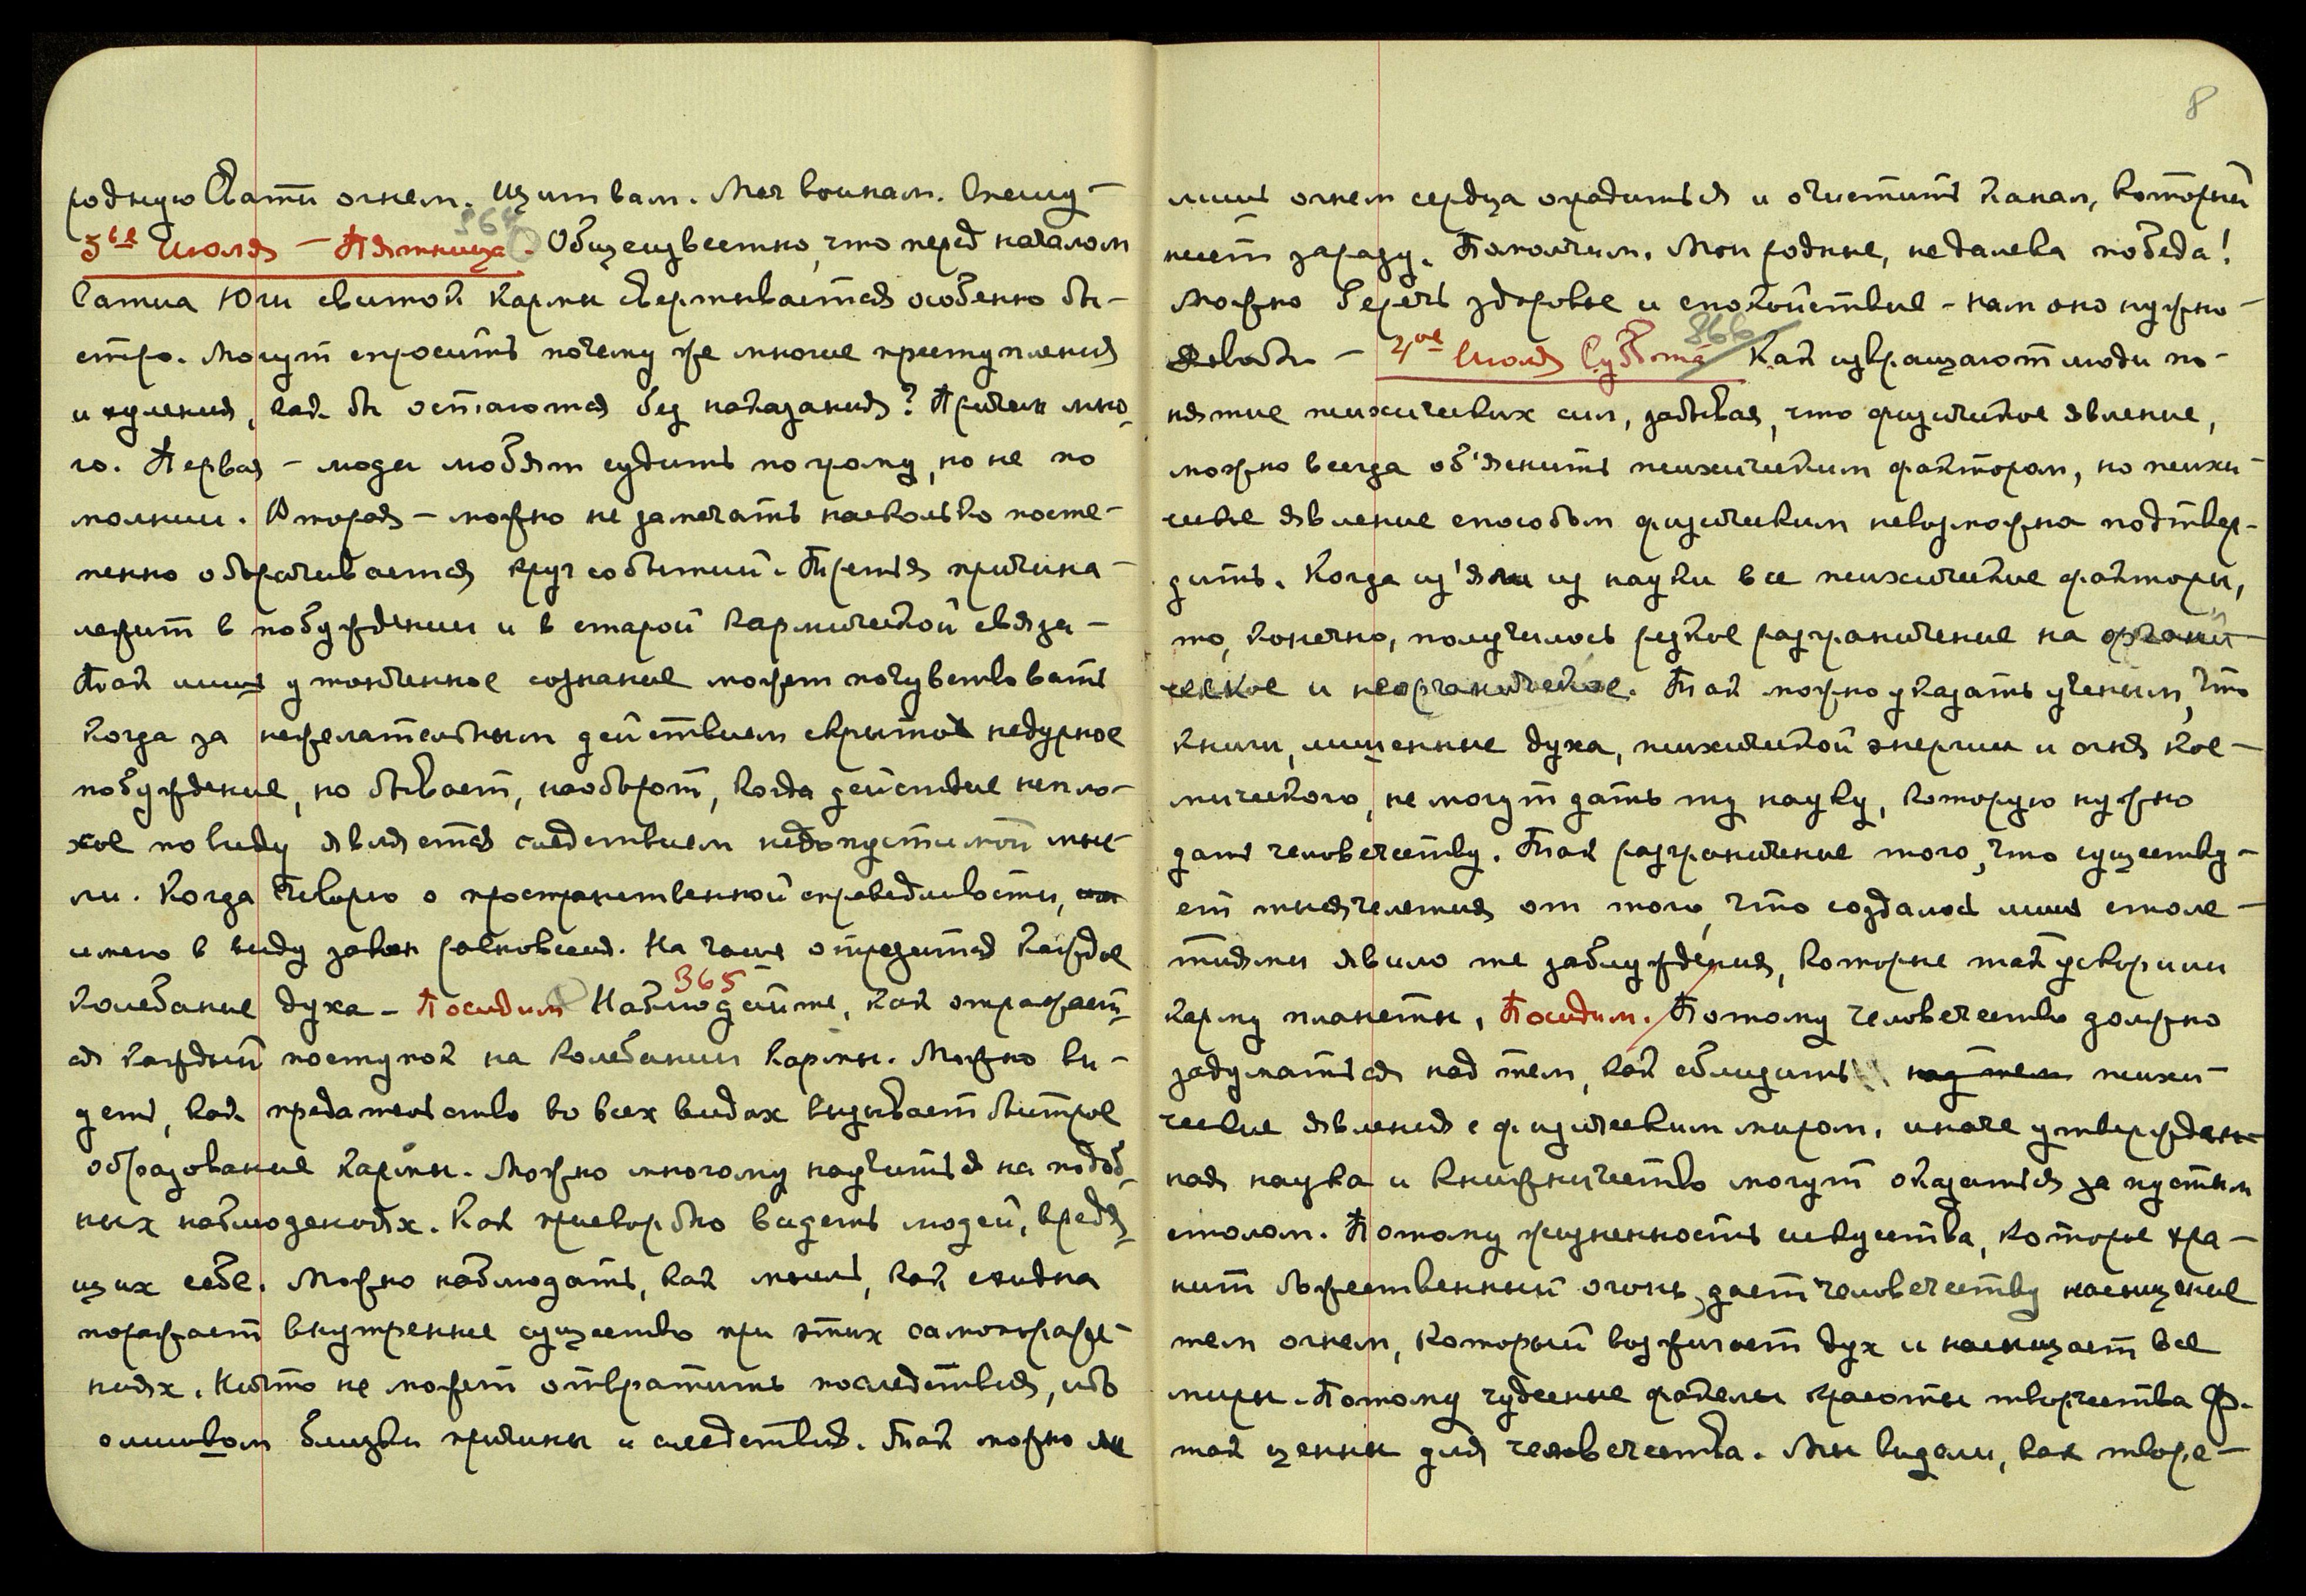 родную Свати огнем. Щит вам. Меч воинам. Спешу –
364
3ье Июля – Пятница. Общеизвестно, что перед началом
Сатиа Юги свиток кармы свертывается особенно бы-
стро. Могут спросить почему же многие преступления
и хуления, как бы остаются без наказания? Причин мно-
го. Первая – люди любят судить по грому, но не по
молнии. Вторая – можно не замечать насколько посте-
пенно оборачивается круг событий. Третья причина –
лежит в побуждении и в старой кармической связи –
Так лишь утонченное сознание может почувствовать
когда за нежелательным действием скрытое недурное
побуждение, но бывает, наоборот, когда действие непло-
хое по виду является следствием недопустимой мыс-
ли. Когда говорю о пространственной справедливости,
имею в виду закон равновесия. На чаше отразится каждое
365
колебание духа – Посидим Наблюдайте, как отражает-
ся каждый поступок на колебании кармы. Можно ви-
деть, как предательство во всех видах вызывает быстрое
образование кармы. Можно многому научиться на подоб-
ных наблюдениях. Как прискорбно видеть людей, вредя-
щих себе. Можно наблюдать, как мысль, как ехидна
поражает внутреннее существо при этих саморажде-
ниях. Никто не может отвратить последствия, ибо
слишком близки причины и следствия. Так можно
8
лишь огнем сердца оградиться и очистить канал, который
несет заразу. Помолчим. Мои родные, недалека победа!
Можно беречь здоровье и спокойствие – нам оно нужно –
366
Довольно – 4ое Июля Суббота Как извращают люди по-
нятие психических сил, забывая, что физическое явление,
можно всегда об'яснить психическим фактором, но психи-
ческое явление способом физическим невозможно подтвер-
дить. Когда из'яли из науки все психические факторы,
то, конечно, получилось резкое разграничение на органи-
ческое и неорганическое. Так можно указать ученым, что
книги, лишенные духа, психической энергии и огня кос-
мического, не могут дать ту науку, которую нужно
дать человечеству. Так разграничение того, что существу-
ет тысячелетия от того, что создалось лишь столе-
тиями явило те заблуждения, которые так ускорили
карму планеты, Посидим. Потому человечество должно
задуматься над тем, как сблизить над тем психи-
ческие явления с физическим миром, иначе утвержден-
ная наука и книжничество могут оказаться за пустым
столом. Потому жизненность искусства, которое хра-
нит божественный огонь, дает человечеству насыщение
тем огнем, который возжигает дух и насыщает все
миры. Потому чудесные факелы красоты творчества Ф.
так ценны для человечества. Мы видели, как творе-